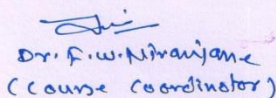 Dr. F. W. Niranjane
(Course Coordinator)